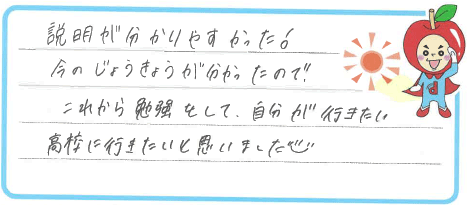 説明が分かりやすかった！
今のじょうきょうが分かったので、
これから勉強をして、自分が行きたい
高校に行きたいと思いました
d